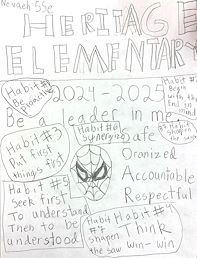 Nevaeh 5Se
HERITAGE
ELEMENTARY
Habit #1
Be
Proactive
2024-2025
Habit #2
Begin
with the
End in
mind
Be a leader in me
Habit #3
Put first
things first
Habit #6
Synergize
Safe
Oranized
Accountable
Respectful
Habit #5
Seek first
To understand
Then to be
understood
#7
shapen
the saw
Habit #4
Think
win-win